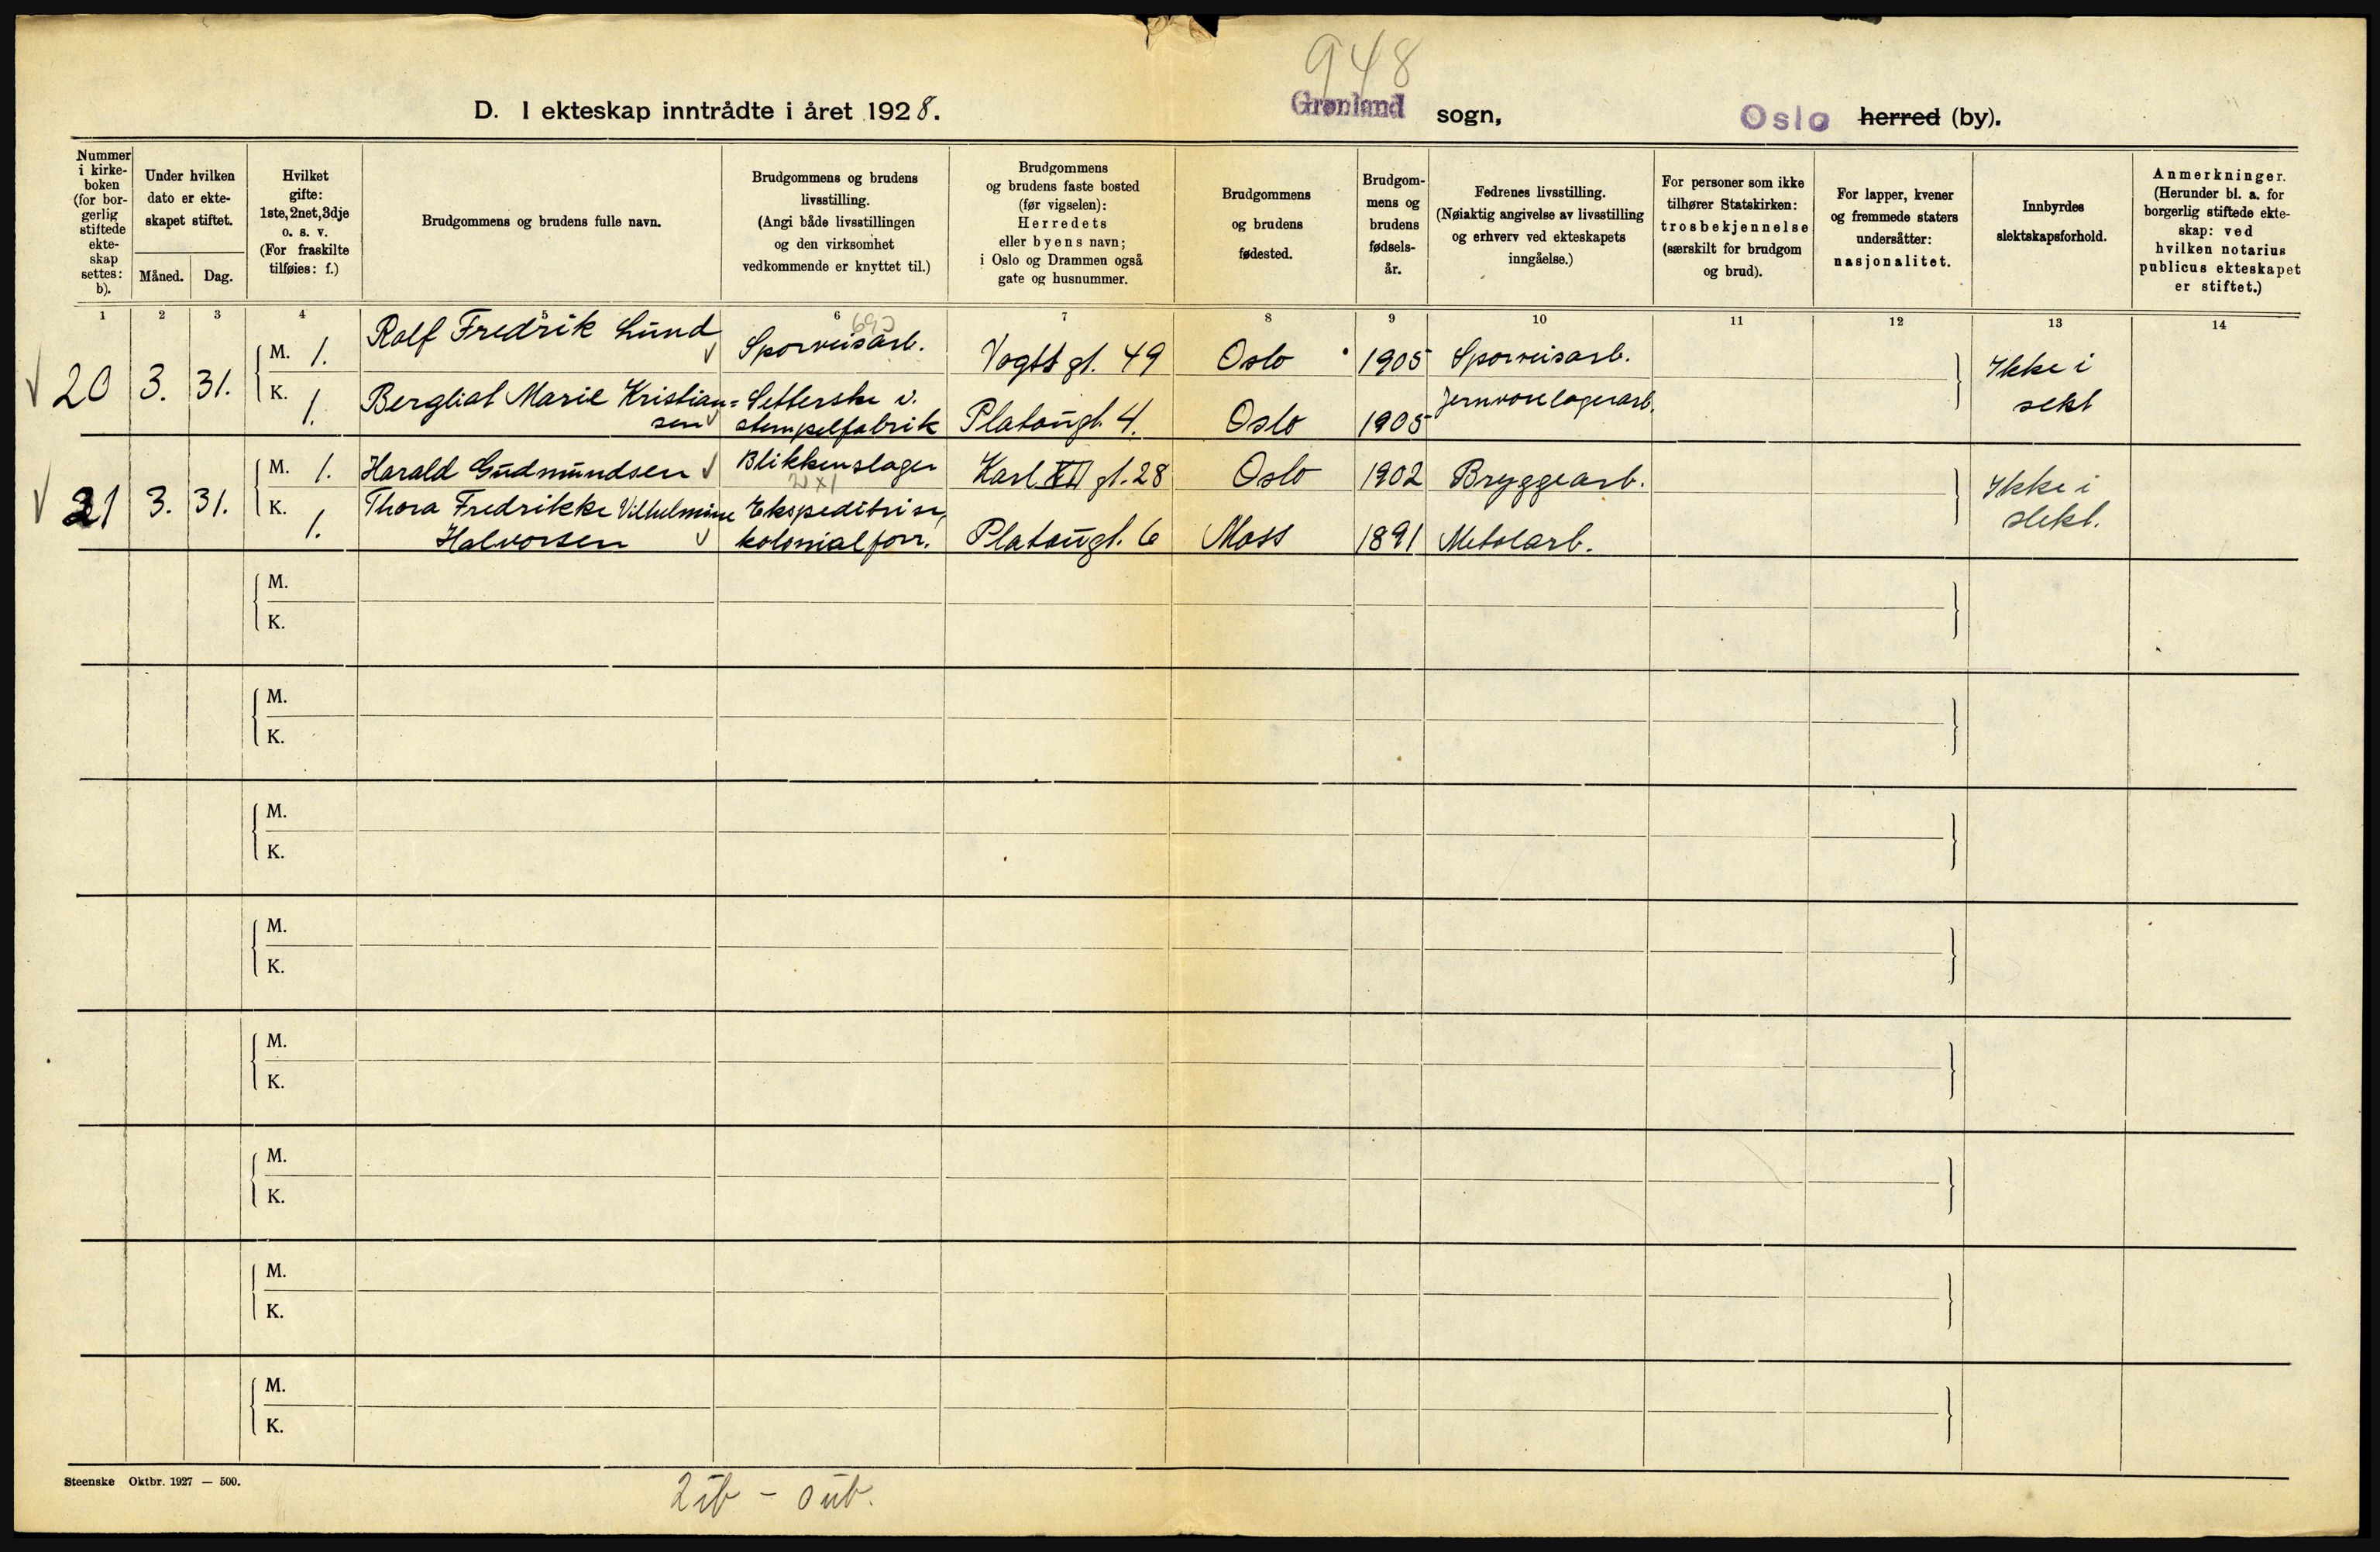 948
D. I ekteskap inntrådte i året 1928.
Grønland sogn,
Oslo herred (by).
Nummer i kirke-boken (for bor-gerlig stiftede ekte-skap settes: b).
Under hvilken dato er ekte-skapet stiftet.
Måned. Dag.
Hvilket gifte: 1ste, 2net, 3dje o. s. v. (For fraskilte tilføies: f.)
Brudgommens og brudens fulle navn.
Brudgommens og brudens livsstilling. (Angi både livsstillingen og den virksomhet vedkommende er knyttet til.)
Brudgommens og brudens faste bosted (før vigselen): Herredets eller byens navn; i Oslo og Drammen også gate og husnummer.
Brudgommens og brudens fødested.
Brudgom-mens og brudens fødsels-år.
Fedrenes livsstilling. (Nøiaktig angivelse av livsstilling og erhverv ved ekteskapets inngåelse.)
For personer som ikke tilhører Statskirken: trosbekjennelse (særskilt for brudgom og brud).
For lapper, kvener og fremmede staters undersåtter: nasjonalitet.
Innbyrdes slektskapsforhold.
Anmerkninger. (Herunder bl. a. for borgerlig stiftede ekte-skap: ved hvilken notarius publicus ekteskapet er stiftet.)
1 2 3 4 5 6 7 8 9 10 11 12 13 14
20 3. 31.
M. 1. Rolf Fredrik Lund Sporveisarb. Vogts gt. 49 Oslo 1905 Sporveisarb. Ikke i
K. 1. Bergliot Marie Kristian= Setterske i. Platougt. 4. Oslo 1905 Jernvarelagerarb. sekt
sen stempelfabrik
21 3. 31.
M. 1. Harald Gudmundsen Blikkenslager Karl XII gt. 28 Oslo 1902 Bryggearb. Ikke i
K. 1. Thora Fredrikke Vilhelmine Ekspeditrise, Platougt. 6 Moss 1891 Metalarb. slekt.
Halvorsen kolonialforr.
M.
K.
M.
K.
M.
K.
M.
K.
M.
K.
M.
K.
M.
K.
M.
K.
Steenske Oktbr. 1927 — 500.
2 ib - 0 ub.